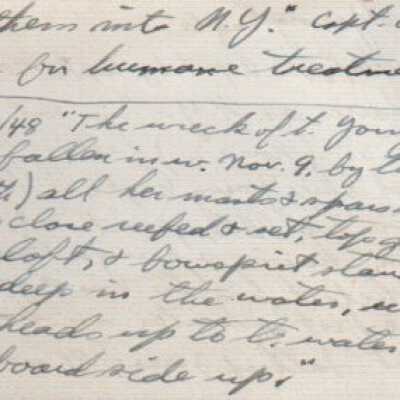 them into N.Y." Capt.
for humane treatme
/48 "The wreck of t. You
fallen in w. Nov. 9. by t
) all her masts & spars
close reefed & set, top g
loft, & bowsprit stan
deep in the water,
heads up to t. water
board side up."